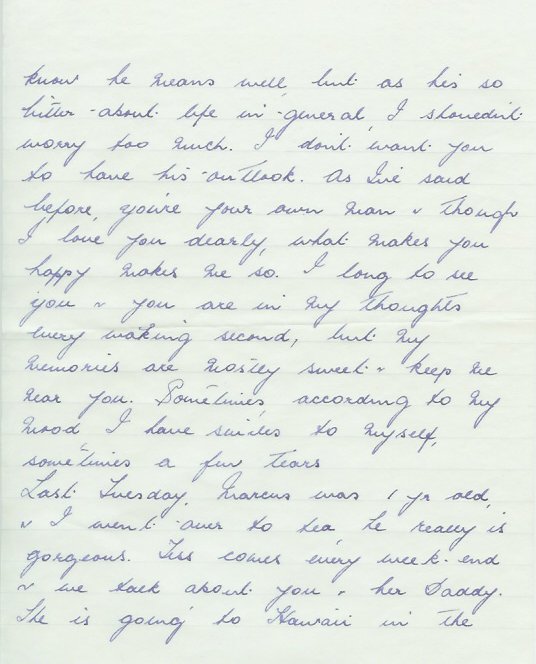 know he means well, but as his so
bitter about life in general, I shouldn't
worry too much. I don't want you
to have his outlook. As I've said
before, you're your own man & though
I love you dearly, what makes you
happy makes me so. I long to see
you & you are in my thoughts
every waking second, but my
memories are mostly sweet & keep me
near you. Sometimes, according to my
mood, I have smiles to myself,
sometimes a few tears
Last Tuesday, Marcus was 1 yr old,
& I went over to tea he really is
gorgeous. Tiss comes every week-end
& we talk about you & her Daddy.
She is going to Hawaii in the